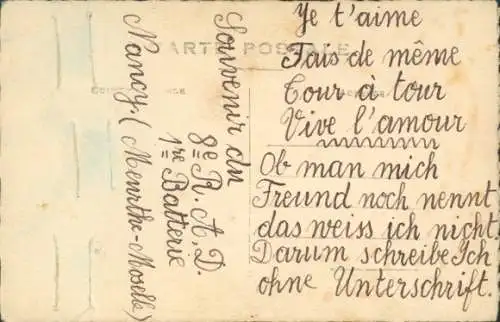 Je t'aime
Fais de même
Tour à tour
Vive l'amour
Ob man mich
Freund noch nennt
das weiss ich nicht
Darum schreibe Ich
ohne Unterschrift.
Souvenir du
8e R. A. D.
1re Batterie
Nancy. (Meurthe-Moselle)
CARTE POSTALE